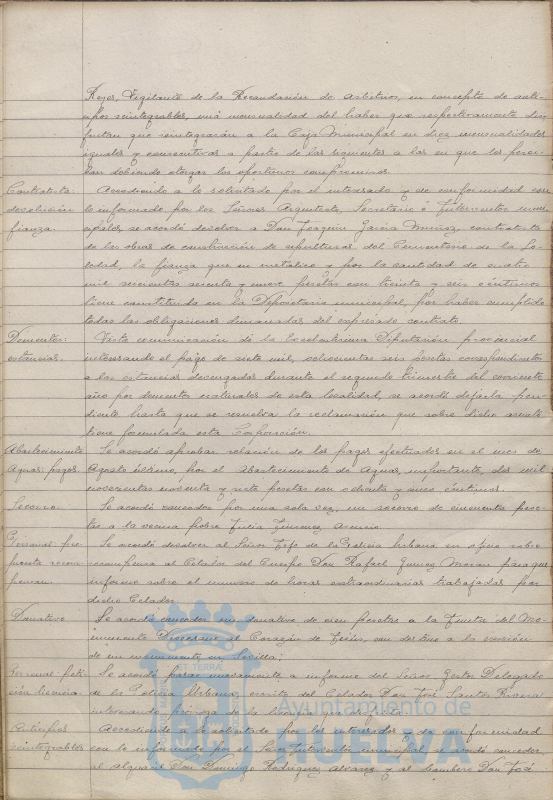 Reyes, Vigilante de la Recaudación de Arbitrios, en concepto de anti-
cipos reintegrables, una mensualidad del haber que respectivamente dis-
frutan que reintegrarán a la Caja Municipal en diez mensualidades
iguales y consecutivas a partir de las siguientes a las en que los perci-
ban debiendo otorgar los oportunos compromisos.
Contratista: devolución fianza.
Accediendo a lo solicitado por el interesado y de conformidad con
lo informado por los Señores Arquitecto, Secretario e Interventor muni-
cipales, se acordó devolver a Don Joaquín García Muñoz, contratista
de las obras de construcción de sepulturas del Cementerio de la So-
ledad, la fianza que en metálico y por la cantidad de cuatro
mil setecientas y nueve pesetas con treinta y seis céntimos
tiene constituida en la Depositaría municipal, por haber cumplido
todas las obligaciones dimanadas del expresado contrato.
Dementes: estancias.
Vista comunicación de la Excelentísima Diputación provincial
interesando el pago de siete mil, ochocientas seis pesetas correspondientes
a las estancias devengadas durante el segundo trimestre del corriente
año por dementes naturales de esta localidad, se acordó dejarla pen-
diente hasta que se resuelva la reclamación que sobre dicho asunto
tiene formulada esta Corporación.
Abastecimiento Aguas: pagos.
Se acordó aprobar relación de los pagos efectuados en el mes de
Agosto último, por el Abastecimiento de Aguas, importante, dos mil
novecientas noventa y siete pesetas con ochenta y cinco céntimos.
Socorro.
Se acordó conceder por una sola vez, un socorro de cincuenta pese-
tas a la vecina pobre Julia Jimenez
Personal: pro- puesta recom- pensa.
Se acordó devolver al Señor Jefe de la Policía Urbana su oficio sobre
recompensa al Celador del Cuerpo Don Rafael Gomez para que
informe sobre el número de horas extraordinarias trabajadas por
dicho Celador.
Donativo
Se acordó conceder un donativo de cien pesetas a la Junta del Mo-
numento Diocesano al Corazón de Jesús, con destino a la erección
de un monumento, en Sevilla.
Personal: peti- ción licencia.
Se acordó pasar nuevamente a informe del Señor Gestor Delegado
de la Policía Urbana, escrito del Celador Don José Santos Rivera
interesando prórroga de la licencia que disfruta.
Anticipos reintegrables
Accediendo a lo solicitado por los interesados y de conformidad
con lo informado por el Señor Interventor municipal, se acordó conceder
al Alguacil Don Domingo Rodríguez Alvarez y al bombero Don José
Ayuntamiento de
HUELVA